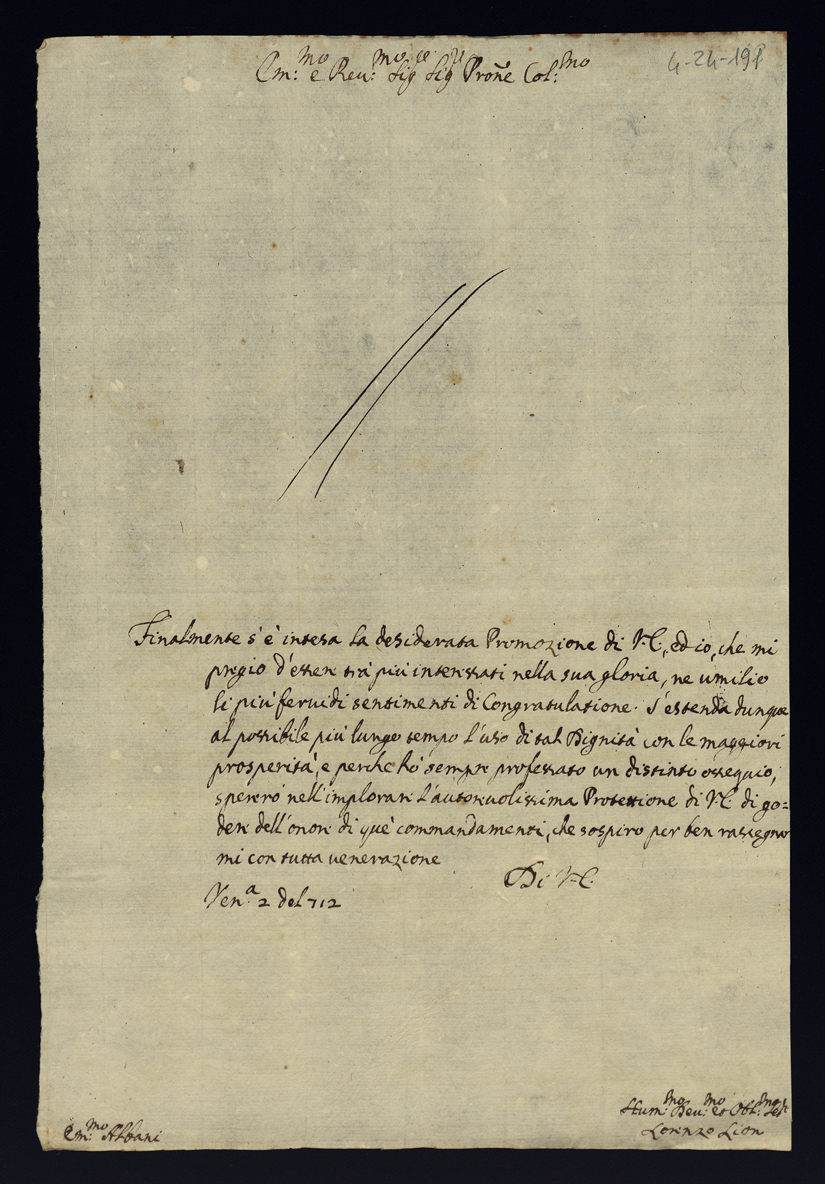 4-24-198
Em:mo e Reu:mo Sig.re Sig.r Prone Col:mo
Finalmente s'è intesa la desiderata Promozione di V.E., ed io, che mi
pregio d'esser trà più interessati nella sua gloria, ne umilio
li più feruidi sentimenti di Congratulatione. S'estenda dunque
al possibile più lungo tempo l'uso di tal Dignità con le maggiori
prosperità, e perche hò sempre professato un distinto ossequio,
spererò nell'implorar l'autoreuolissima Protettione di V.E. di go=
der dell'onor di què commandamenti, che sospiro per ben rassegnar
mi con tutta uenerazione
Di V.E.
Ven.a 2 del 712
Hum:mo Deu:mo et Obl:mo
Lorenzo Lion
Em:mo Albani